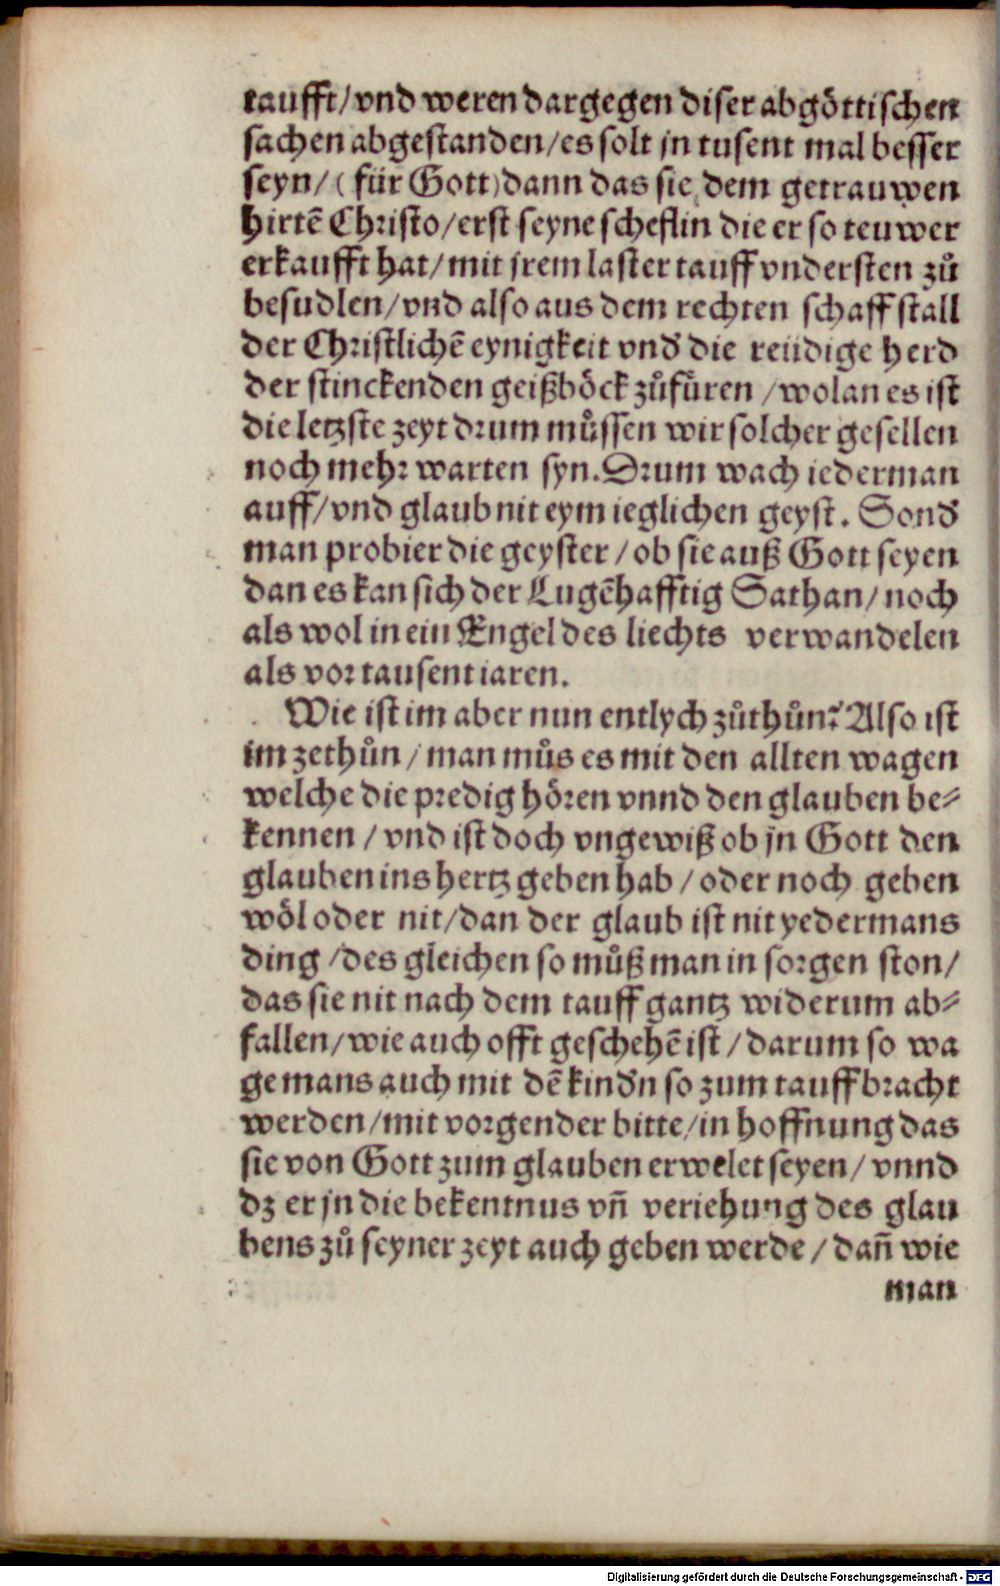 taufft/vnd weren dargegen diser abgöttischen
sachen abgestanden/es solt jn tusent mal besser
seyn/(für Gott)dann das sie dem getrauwen
hirtē Christo/erst seyne scheflin die er so teuwer
erkaufft hat/mit jrem laster tauff vndersten zů
besudlen/vnd also aus dem rechten schaff stall
der Christlichē eynigkeit vnd̕ die reüdige herd
der stinckenden geißböck zůfüren/wolan es ist
die letzste zeyt drum můssen wir solcher gesellen
noch mehr warten syn. Drum wach iederman
auff/vnd glaub nit eym ieglichen geyst. Sond̕
man probier die geyster/ob sie auß Gott seyen
dan es kan sich der Lugēhafftig Sathan/noch
als wol in ein Engel des liechts verwandelen
als vor tausent iaren.
Wie ist im aber nun entlych zůthůn? Also ist
im zethůn/man můs es mit den allten wagen
welche die predig hören vnnd den glauben be⸗
kennen/vnd ist doch vngewiß ob jn Gott den
glauben ins hertz geben hab/oder noch geben
wöl oder nit/dan der glaub ist nit yedermans
ding/des gleichen so můß man in sorgen ston/
das sie nit nach dem tauff gantz widerum ab⸗
fallen/wie auch offt geschehē ist/darum so wa
ge mans auch mit dē kind̕n so zum tauff bracht
werden/mit vorgender bitte/in hoffnung das
sie von Gott zum glauben erwelet seyen/vnnd
dz er jn die bekentnus vñ veriehung des glau
bens zů seyner zeyt auch geben werde/dañ wie
man
Digitalisierung gefördert durch die Deutsche Forschungsgemeinschaft - DFG